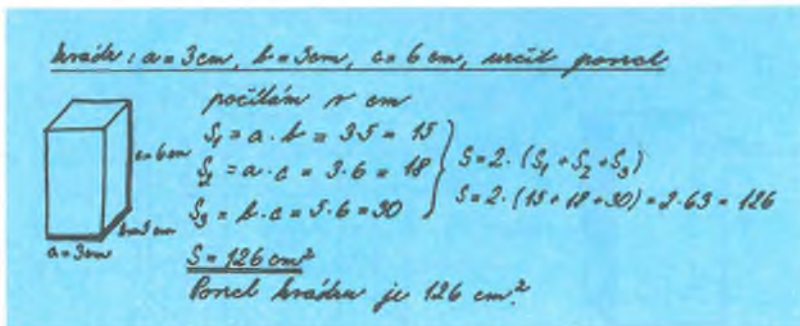 kvádr: a = 3 cm, b = 5 cm, c = 6 cm, určit povrch
počítám v cm
S₁ = a · b = 3·5 = 15
S₂ = a · c = 3·6 = 18
S₃ = b · c = 5·6 = 30
S = 2 · (S₁ + S₂ + S₃)
S = 2 · (15 + 18 + 30) = 2·63 = 126
c = 6 cm
b = 5 cm
a = 3 cm
S = 126 cm²
Povrch kvádru je 126 cm².